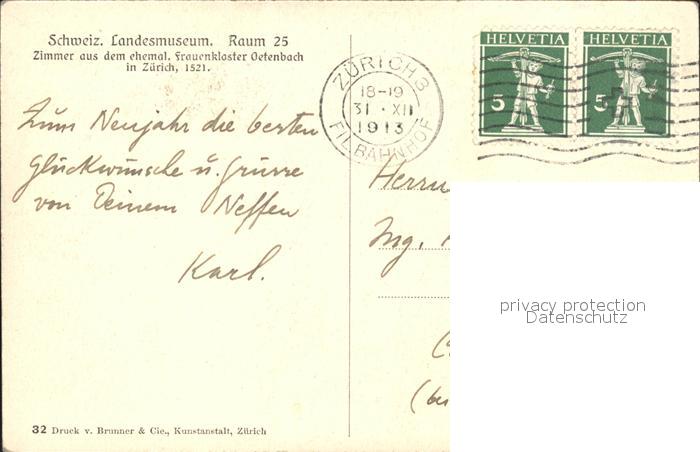 Schweiz. Landesmuseum. Raum 25
Zimmer aus dem ehemal. Frauenkloster Oetenbach
in Zürich, 1521.
HELVETIA HELVETIA
5 5
ZÜRICH 3
18-19
31 · XII
1913
FIL BAHNHOF
Zum Neujahr die besten
Glückwünsche u. Grüsse
von Deinem Neffen
Karl.
Herrn
Ing.
privacy protection
Datenschutz
32 Druck v. Brunner & Cie., Kunstanstalt, Zürich